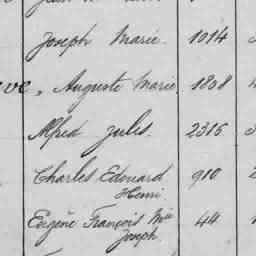 Joseph Marie. 1014
" Auguste Marie 1808
Alfred Jules. 2316
Charles Edouard 910
Henri
Eugène François Mie 44
Joseph